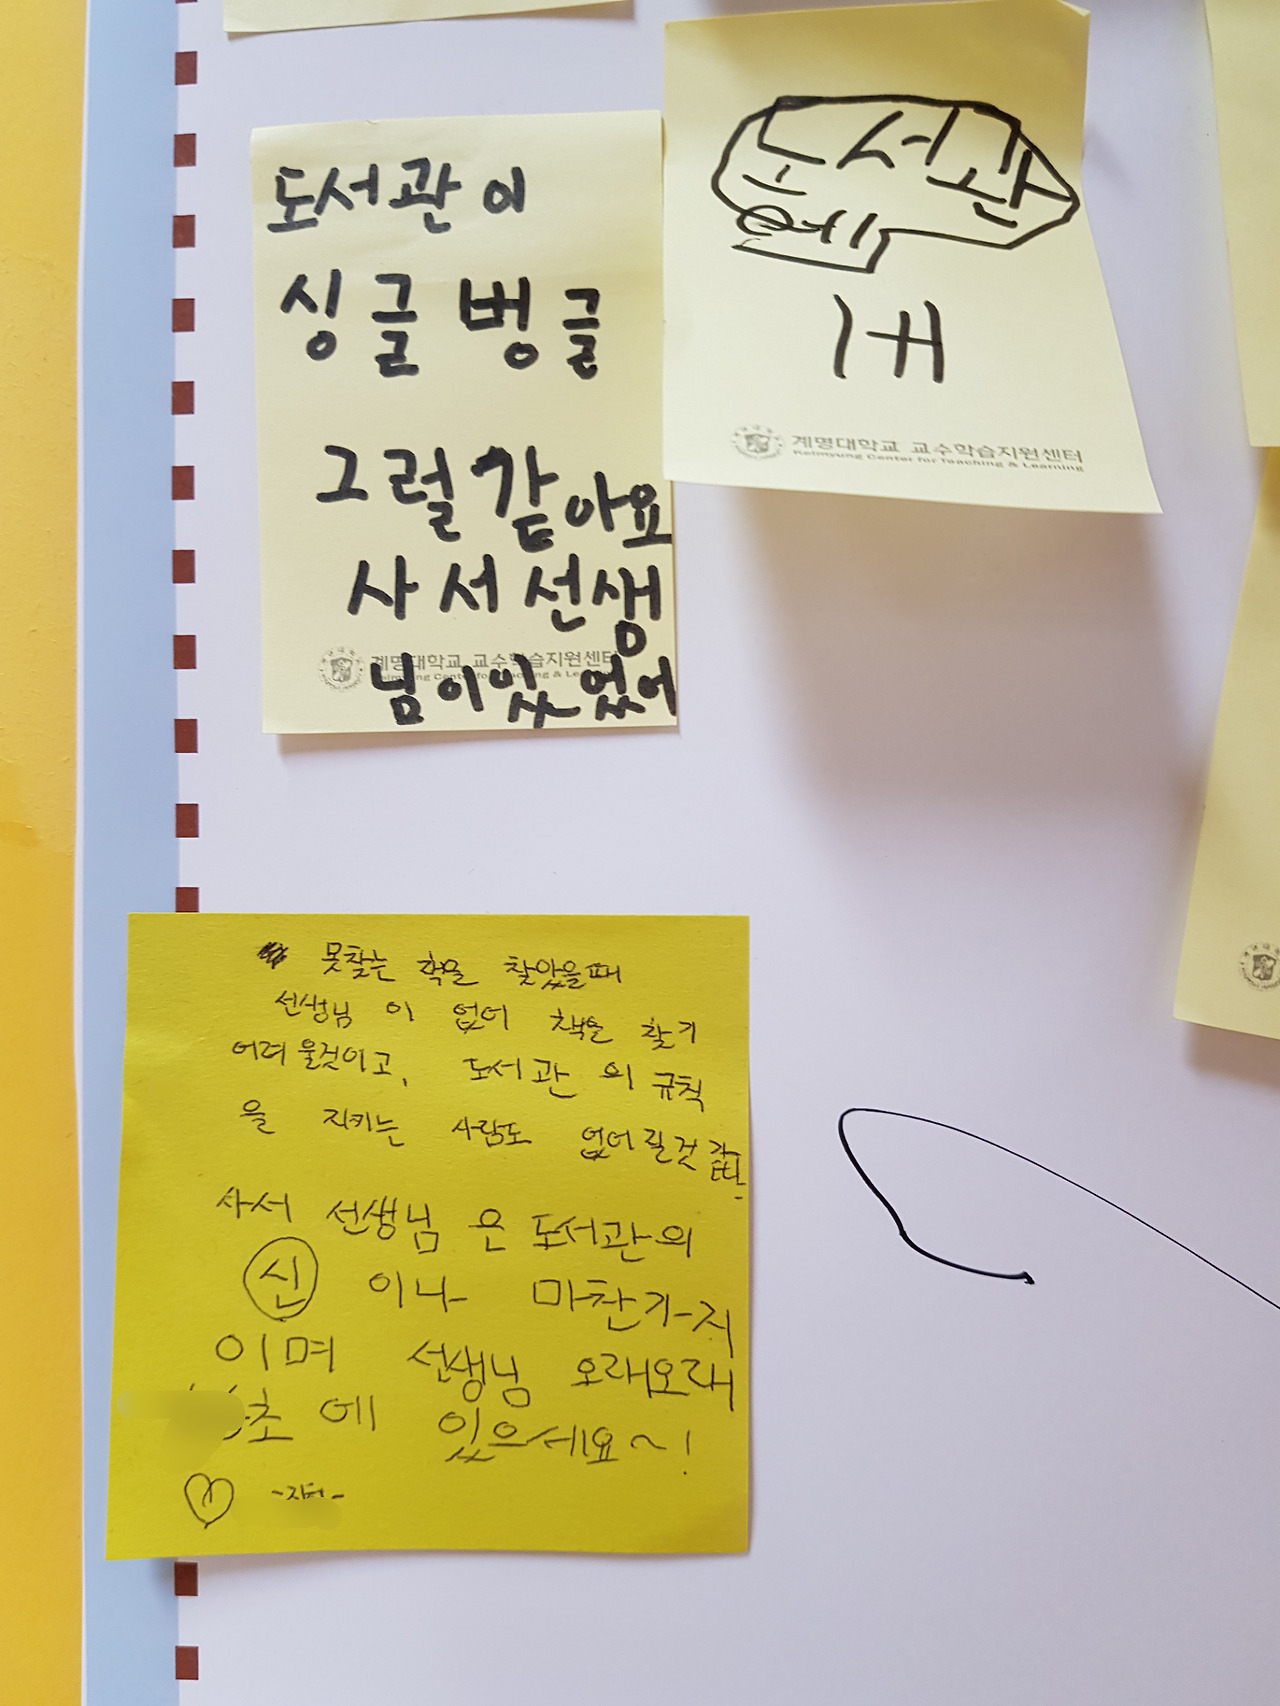 도서관이
싱글벙글
그럴같아요
사서선생
님이있없어
계명대학교 교수학습지원센터
Keimyung Center for Teaching & Lea
도서관
에
계명대학교 교수학습지원센터
Keimyung Center for Teaching & Learning
못찾는 책을 찾았을때
선생님 이 없어 책을 찾기
어려울것이고, 도서관의 규칙
을 지키는 사람도 없어질것 같다.
사서 선생님 은 도서관의
신 이나 마찬가지
이며 선생님 오래오래
초에 있으세요~!